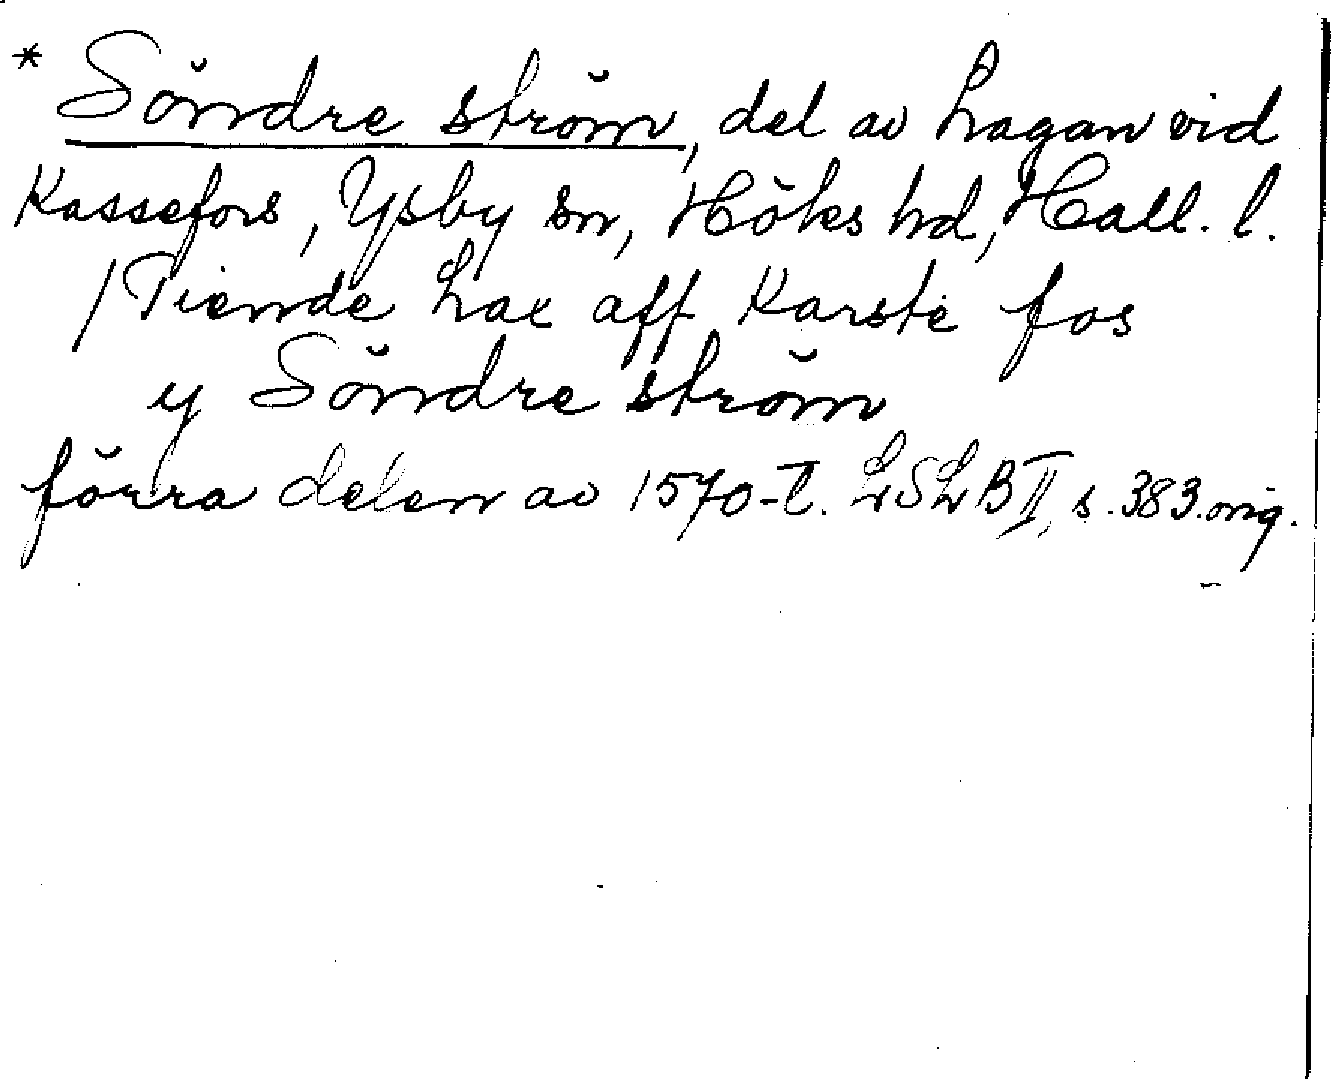 * Söndre ström, del av Lagan vid
Kassefors, Ysby sn, Höks hd, Hall. l.
/Tiende Lax aff Karste fos
y Söndre ström
förra delen av 1570-t. LSLB II, s. 383. orig.